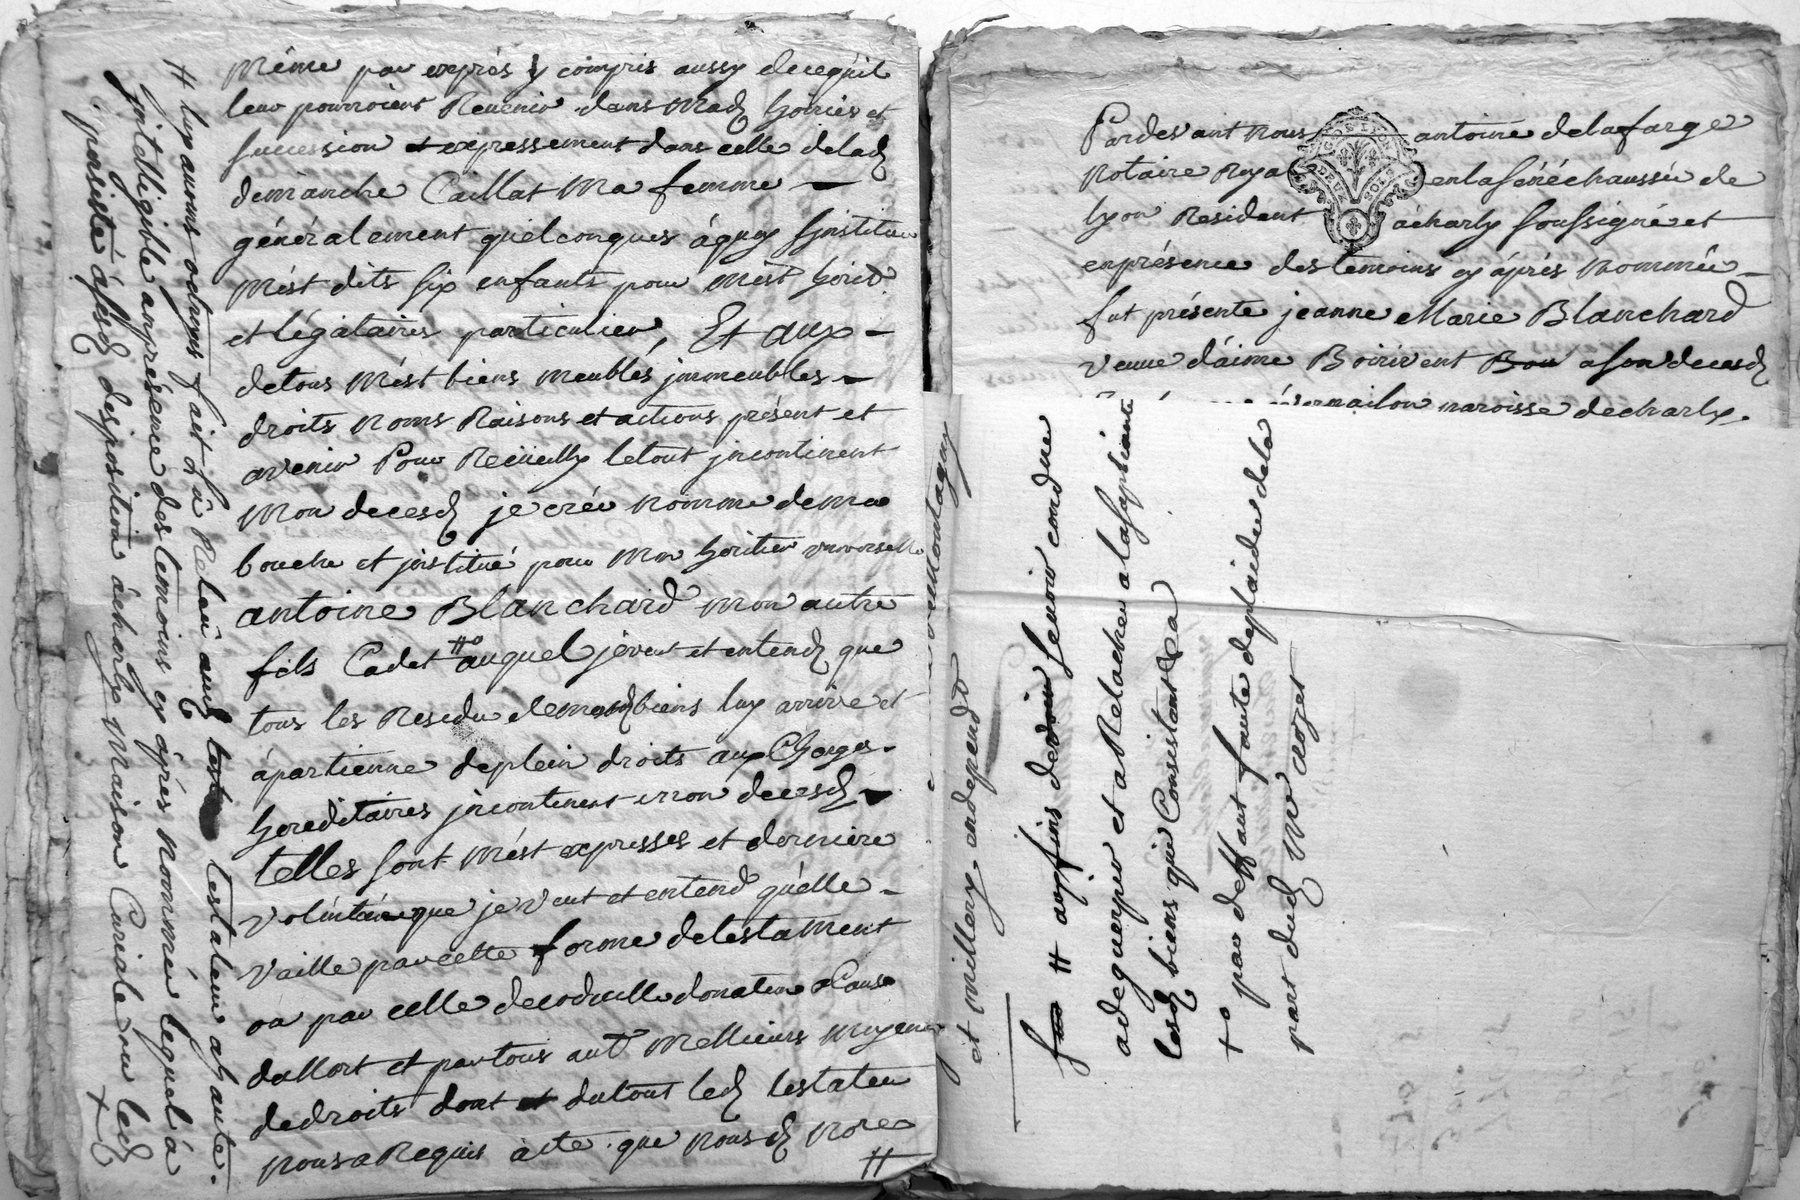 Même par exprés y compris aussy de ce quil
leur pourroient Revenir dans Mad hoiries et
succession et expressement dans celle delad
demanche Caillat Ma femme
généralement quelconques áquoy jinstitue
Mést dits six enfants pour mést hoirs
et légataires particulier, Et aux
detous Mést biens meublés jmmeubles
droits Noms Raisons et actions présent et
avenir Pour Recüeilly letout jncontinent
Mon decesd je crée Nomme de ma
bouche et jnstitué pour Mon héritier universelle
antoine Blanchard mon autre
fils Cadet #o auquel jeveut et entend que
tous les Residu demesd biens luy arrive et
ápartienne deplein droits aux Charges
héréditaires jncontinent mon decesd
telles sont Mést expresses et dernière
volüntée que je veut et entend quélle
Vaille par cette forme de testament
ou par celle decodicille donation a Cause
de Mort et par tous autr Mellieurs moyens
dedroits dont et dutout led testateur
Nous a Requis ácte que Nousd Nore
#
# luy avons octroyé fait Lû Releu aud testateur á haute
jntelligible anprésence des temoins cy áprés Nommée lequel á
persisté ásesd disposition ácharly Maison Curiale ou led
+
Pardevant Nous antoine delafarge
Notaire Royal enlasénéchaussée de
lyon Resident ácharly soussigné et
enprésence des temoins cy áprés Nommée
fut présente jeanne Marie Blanchard
veuve d'áime Boirivent ason decesd
paroisse decharly
G DE LYON
DEUX SOLS
Montagny
et Millery, endependd
# aux fins de se voir condner
adeguerpir et a Relacher a lasupliante
lesd biens qui Consistant a
+o par deffaut faute deplaider dela
part dud